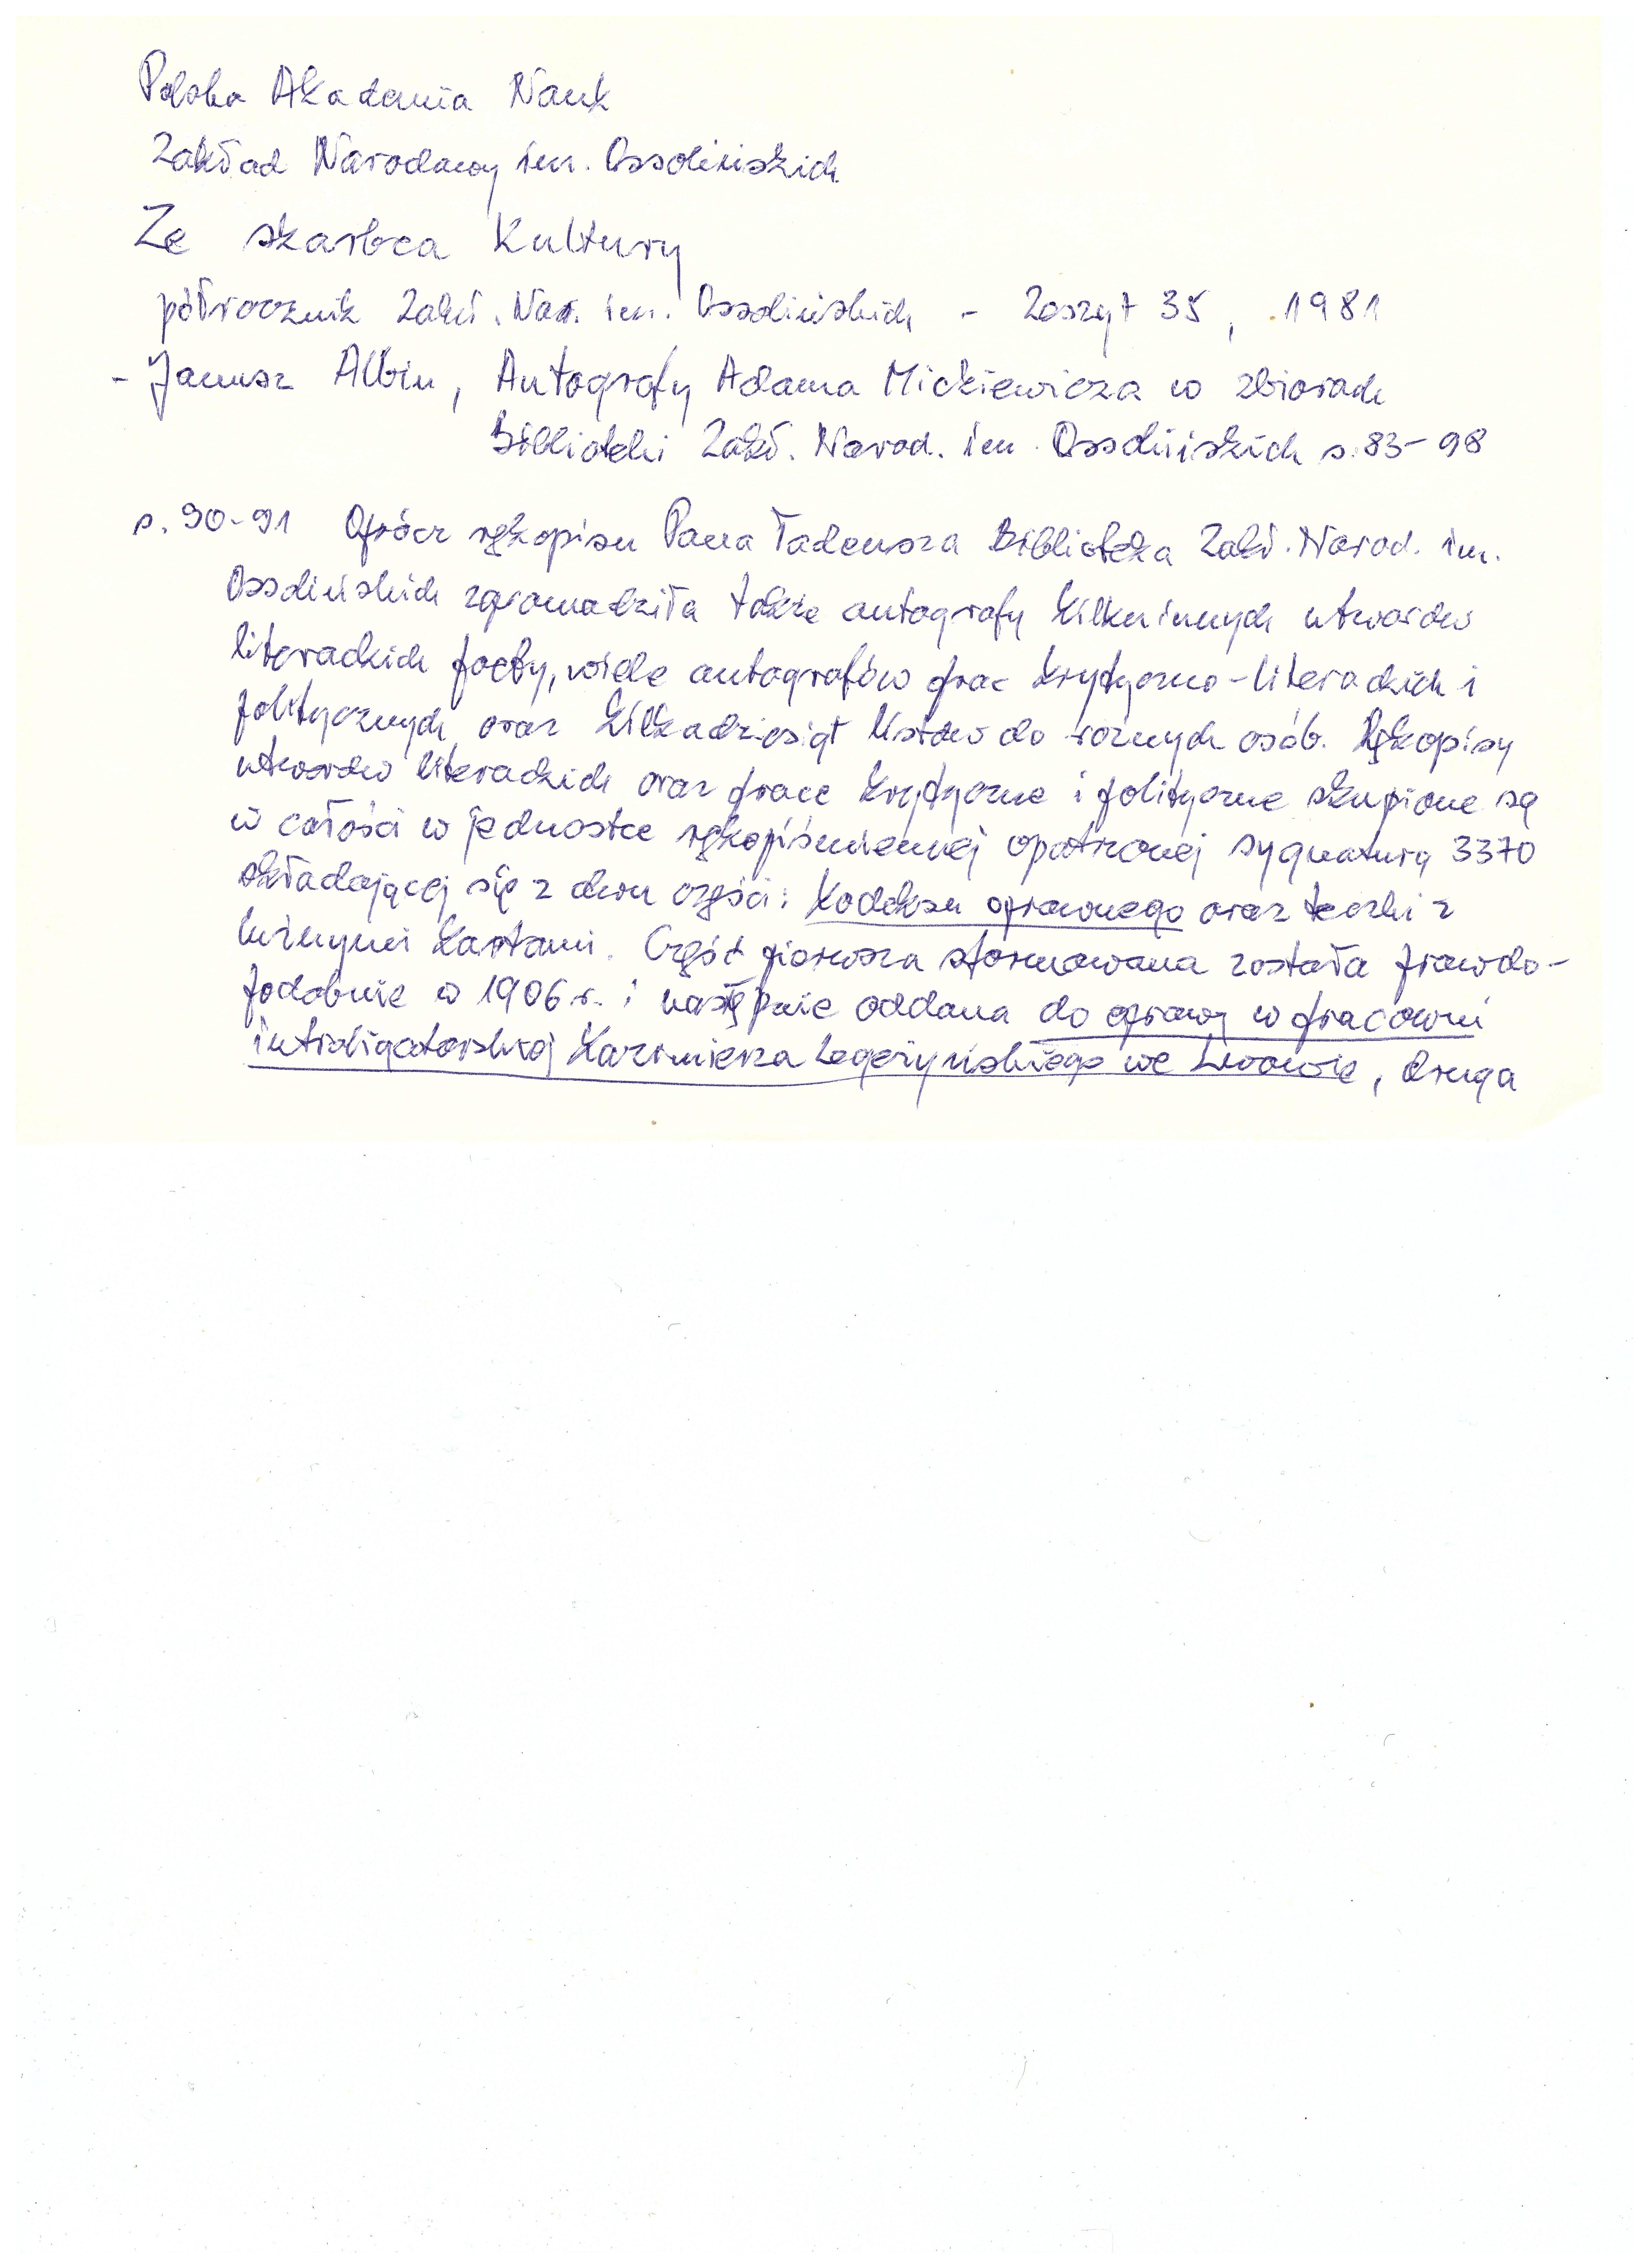 Polska Akademia Nauk
Zakład Narodowy im. Ossolińskich
Ze skarbca Kultury
półrocznik Zakł. Nar. im. Ossolińskich - Zeszyt 35, 1981
- Janusz Albin, Autografy Adama Mickiewicza w zbiorach
Biblioteki Zakł. Narod. im. Ossolińskich s. 83-98
s. 90-91 Oprócz rękopisu Pana Tadeusza Biblioteka Zakł. Narod. im.
Ossolińskich zgromadziła także autografy kilku innych utworów
literackich poety, wiele autografów prac krytyczno-literackich i
politycznych oraz kilkadziesiąt listów do różnych osób. Rękopisy
utworów literackich oraz prace krytyczne i polityczne skupione są
w całości w jednostce rękopiśmiennej opatrzonej sygnaturą 3370
składającej się z dwu części: Kodeksu oprawnego oraz teczki z
luźnymi kartami. Część pierwsza sformowana została prawdo-
podobnie w 1906 r. i następnie oddana do oprawy w pracowni
introligatorskiej Kazimierza Legeżyńskiego we Lwowie, druga